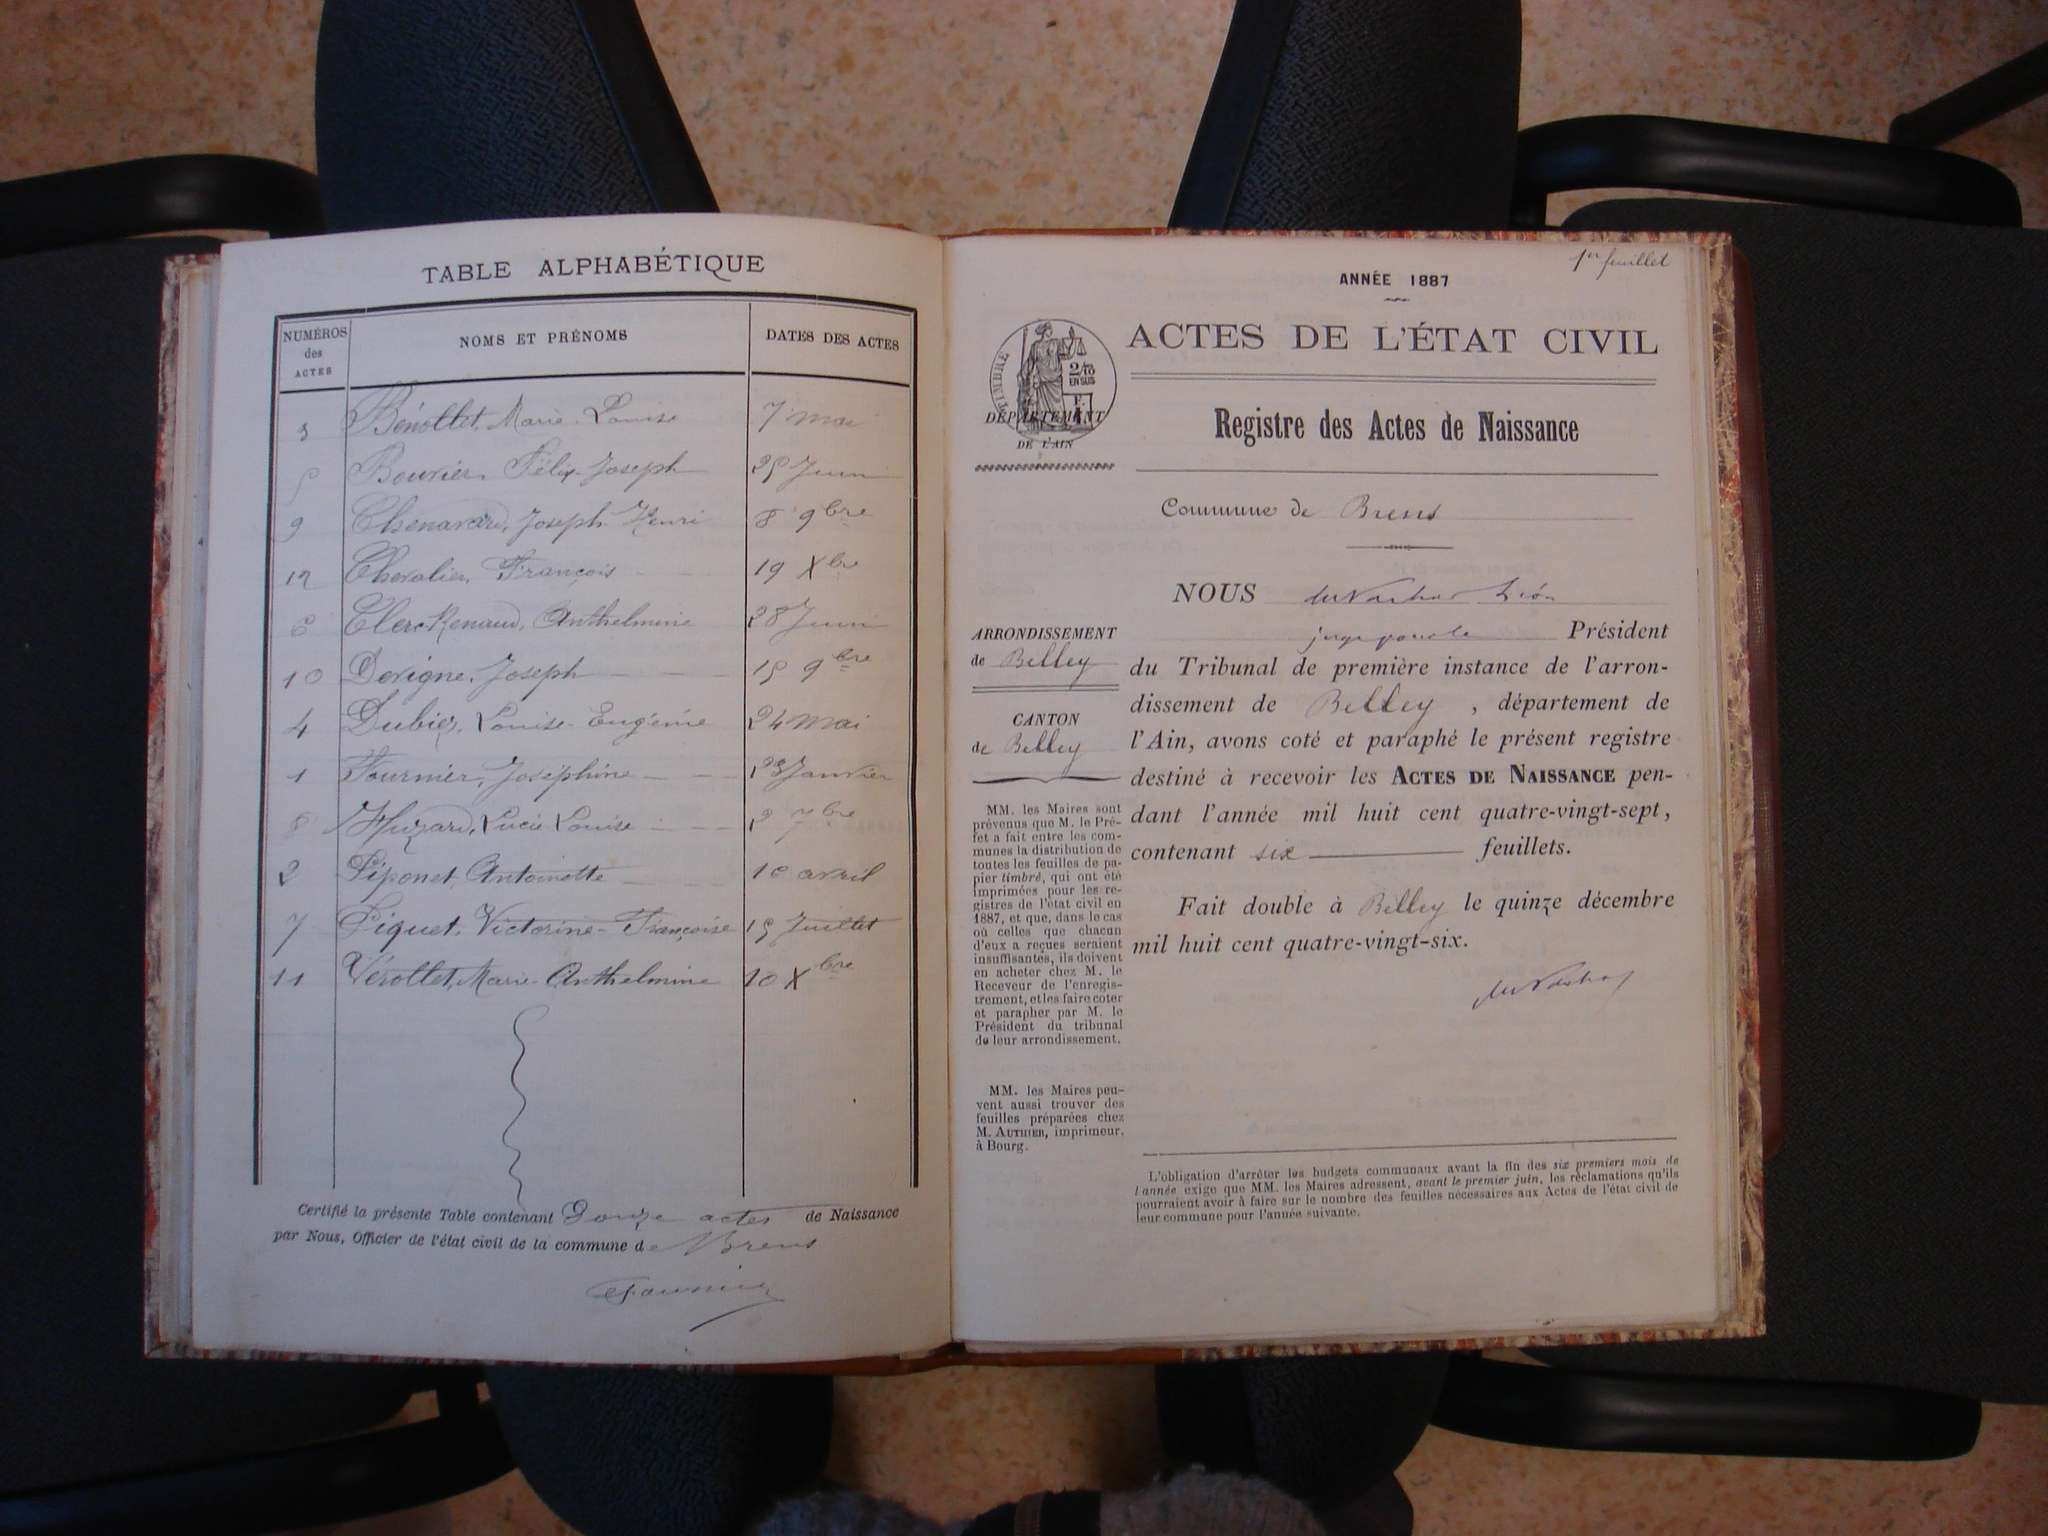 TABLE ALPHABÉTIQUE
NUMÉROS des ACTES NOMS ET PRÉNOMS DATES DES ACTES
3 Bénollet, Marie-Louise 7 mai
5 Bouvier, Félix-Joseph 25 Juin
9 Chenavard, Joseph-Henri 8 9bre
12 Chevalier, François 19 Xbre
6 Clerc-Renaud, Anthelmine 28 Juin
10 Devigne, Joseph 15 9bre
4 Dubiez, Louise-Eugénie 24 mai
1 Fournier, Joséphine 23 Janvier
8 Huzard, Lucie Louise 2 7bre
2 Piponet, Antoinette 10 avril
7 Piquet, Victorine-Françoise 15 Juillet
11 Vérollet, Marie-Anthelmine 10 Xbre
Certifié la présente Table contenant Douze actes de Naissance
par Nous, Officier de l'état civil de la commune de Brens
Fournier
1er feuillet
ANNÉE 1887
TIMBRE
2/10
EN SUS
DÉPARTEMENT
DE L'AIN
ACTES DE L'ÉTAT CIVIL
Registre des Actes de Naissance
Commune de Brens
ARRONDISSEMENT
de Belley
CANTON
de Belley
MM. les Maires sont
prévenus que M. le Pré-
fet a fait entre les com-
munes la distribution de
toutes les feuilles de pa-
pier timbré, qui ont été
imprimées pour les re-
gistres de l'état civil en
1887, et que, dans le cas
où celles que chacun
d'eux a reçues seraient
insuffisantes, ils doivent
en acheter chez M. le
Receveur de l'enregis-
trement, et les faire coter
et parapher par M. le
Président du tribunal
de leur arrondissement.
MM. les Maires peu-
vent aussi trouver des
feuilles préparées chez
M. AUTHIER, imprimeur,
à Bourg.
NOUS Léon
Président
du Tribunal de première instance de l'arron-
dissement de Belley, département de
l'Ain, avons coté et paraphé le présent registre
destiné à recevoir les ACTES DE NAISSANCE pen-
dant l'année mil huit cent quatre-vingt-sept,
contenant six feuillets.
Fait double à Belley le quinze décembre
mil huit cent quatre-vingt-six.
L'obligation d'arrêter les budgets communaux avant la fin des six premiers mois de
l'année exige que MM. les Maires adressent, avant le premier juin, les réclamations qu'ils
pourraient avoir à faire sur le nombre des feuilles nécessaires aux Actes de l'état civil de
leur commune pour l'année suivante.